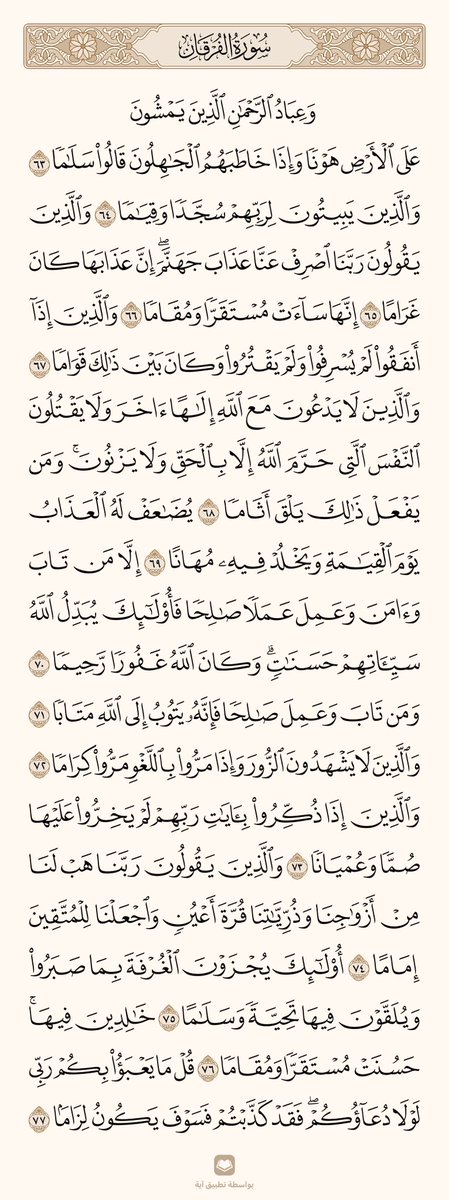 سُورَةُ الفُرْقَانِ
وَعِبَادُ ٱلرَّحْمَٰنِ ٱلَّذِينَ يَمْشُونَ
عَلَى ٱلْأَرْضِ هَوْنًا وَإِذَا خَاطَبَهُمُ ٱلْجَٰهِلُونَ قَالُوا۟ سَلَٰمًا ٦٣
وَٱلَّذِينَ يَبِيتُونَ لِرَبِّهِمْ سُجَّدًا وَقِيَٰمًا ٦٤ وَٱلَّذِينَ
يَقُولُونَ رَبَّنَا ٱصْرِفْ عَنَّا عَذَابَ جَهَنَّمَ ۖ إِنَّ عَذَابَهَا كَانَ
غَرَامًا ٦٥ إِنَّهَا سَآءَتْ مُسْتَقَرًّا وَمُقَامًا ٦٦ وَٱلَّذِينَ إِذَآ
أَنفَقُوا۟ لَمْ يُسْرِفُوا۟ وَلَمْ يَقْتُرُوا۟ وَكَانَ بَيْنَ ذَٰلِكَ قَوَامًا ٦٧
وَٱلَّذِينَ لَا يَدْعُونَ مَعَ ٱللَّهِ إِلَٰهًا ءَاخَرَ وَلَا يَقْتُلُونَ
ٱلنَّفْسَ ٱلَّتِى حَرَّمَ ٱللَّهُ إِلَّا بِٱلْحَقِّ وَلَا يَزْنُونَ ۚ وَمَن
يَفْعَلْ ذَٰلِكَ يَلْقَ أَثَامًا ٦٨ يُضَٰعَفْ لَهُ ٱلْعَذَابُ
يَوْمَ ٱلْقِيَٰمَةِ وَيَخْلُدْ فِيهِۦ مُهَانًا ٦٩ إِلَّا مَن تَابَ
وَءَامَنَ وَعَمِلَ عَمَلًا صَٰلِحًا فَأُو۟لَٰٓئِكَ يُبَدِّلُ ٱللَّهُ
سَيِّـَٔاتِهِمْ حَسَنَٰتٍ ۗ وَكَانَ ٱللَّهُ غَفُورًا رَّحِيمًا ٧٠
وَمَن تَابَ وَعَمِلَ صَٰلِحًا فَإِنَّهُۥ يَتُوبُ إِلَى ٱللَّهِ مَتَابًا ٧١
وَٱلَّذِينَ لَا يَشْهَدُونَ ٱلزُّورَ وَإِذَا مَرُّوا۟ بِٱللَّغْوِ مَرُّوا۟ كِرَامًا ٧٢
وَٱلَّذِينَ إِذَا ذُكِّرُوا۟ بِـَٔايَٰتِ رَبِّهِمْ لَمْ يَخِرُّوا۟ عَلَيْهَا
صُمًّا وَعُمْيَانًا ٧٣ وَٱلَّذِينَ يَقُولُونَ رَبَّنَا هَبْ لَنَا
مِنْ أَزْوَٰجِنَا وَذُرِّيَّٰتِنَا قُرَّةَ أَعْيُنٍ وَٱجْعَلْنَا لِلْمُتَّقِينَ
إِمَامًا ٧٤ أُو۟لَٰٓئِكَ يُجْزَوْنَ ٱلْغُرْفَةَ بِمَا صَبَرُوا۟
وَيُلَقَّوْنَ فِيهَا تَحِيَّةً وَسَلَٰمًا ٧٥ خَٰلِدِينَ فِيهَا ۚ
حَسُنَتْ مُسْتَقَرًّا وَمُقَامًا ٧٦ قُلْ مَا يَعْبَؤُا۟ بِكُمْ رَبِّى
لَوْلَا دُعَآؤُكُمْ ۖ فَقَدْ كَذَّبْتُمْ فَسَوْفَ يَكُونُ لِزَامًۢا ٧٧
بواسطة تطبيق آية